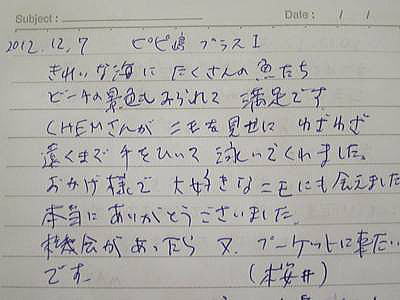 Subject : Date : / /
2012.12.7 ピピ島 プラス I
きれいな海に たくさんの魚たち
ビーチの景色もみられて 満足です
CHEMさんが ニモを見せに わざわざ
遠くまで 手をひいて 泳いでくれました。
おかげ様で 大好きなニモにも会えました
本当にありがとうございました。
機会があったら 又、プーケットに来たい
です。 (